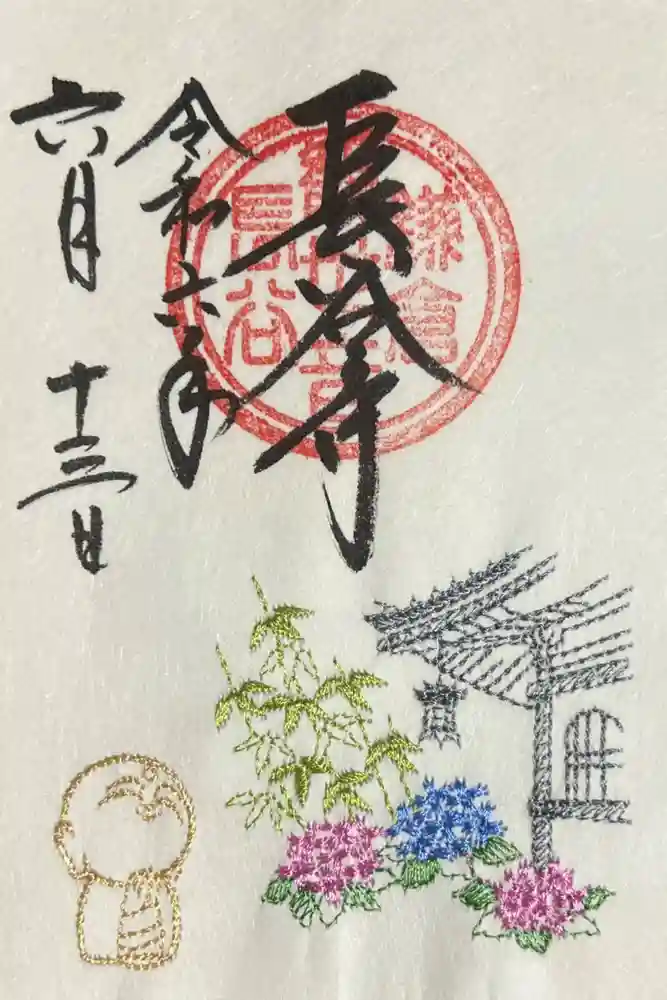 長谷寺
令和六年
六月 十三日
鎌倉
長谷